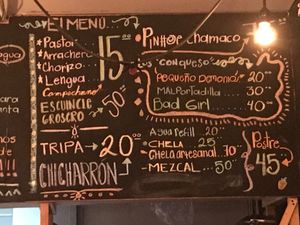 El MENÚ
* Pastor
* Arrachera
* Chorizo
* Lengua
15.00
Campechano
ESCUINCLE
GROSERO
50
TRIPA → 20.00
CHICHARRON
PINHOE CHAMACO
"CONQUESO"
PEQUEÑO Demonio 20.00
MALPORTADILLA 30.00
Bad Girl 40.00
Agua Refill 20
CHELA 25
CHELA artesanal 70
MEZCAL 50
Postre
45